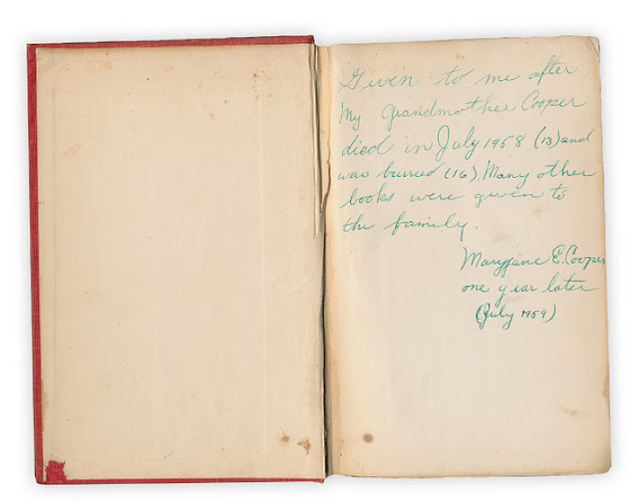 Given to me after
My grandmother Cooper
died in July 1958 (13) and
was buried (16). Many other
books were given to
the family.
Maryjane E. Cooper
one year later
(July 1959)